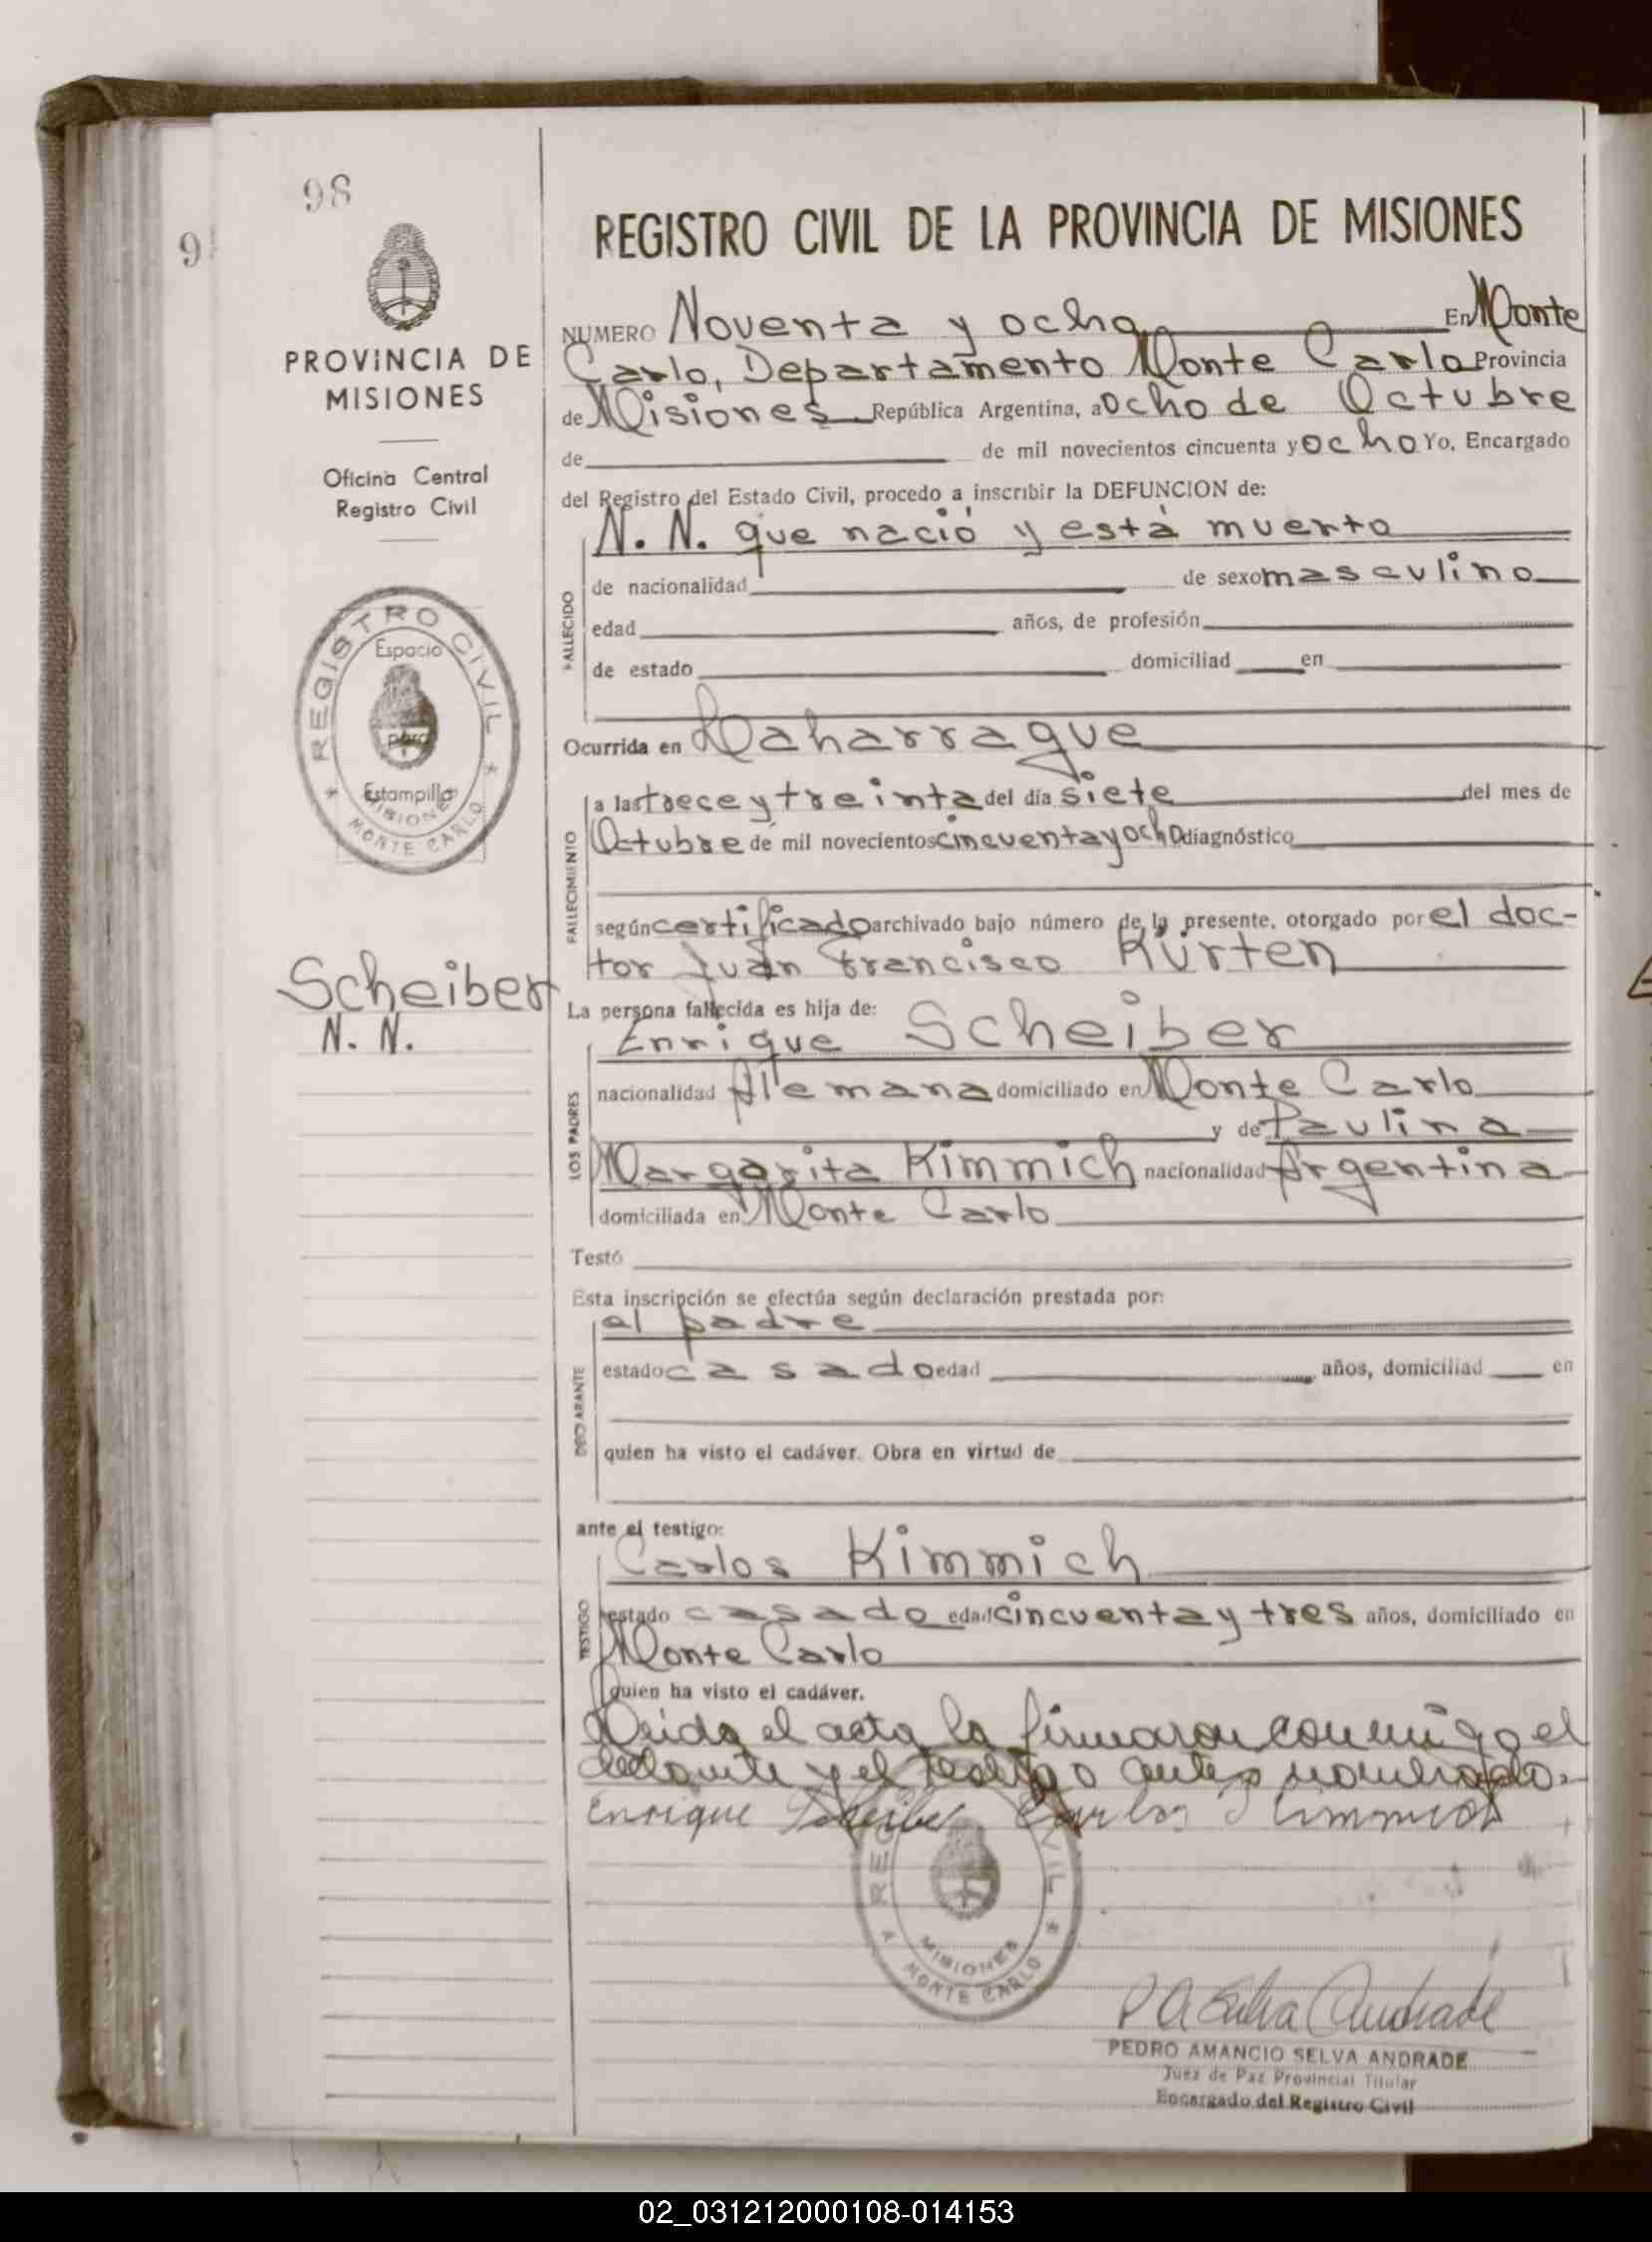 98
9
PROVINCIA DE
MISIONES
Oficina Central
Registro Civil
REGISTRO CIVIL
Espacio
para
Estampilla
MISIONES
MONTE CARLO
Scheiber
N. N.
REGISTRO CIVIL DE LA PROVINCIA DE MISIONES
NUMERO Noventa y ocho En Monte
Carlo, Departamento Monte Carlo Provincia
de Misiones República Argentina, a ocho de Octubre
de de mil novecientos cincuenta y ocho Yo, Encargado
del Registro del Estado Civil, procedo a inscribir la DEFUNCION de:
N. N. que nació y está muerto
FALLECIDO
de nacionalidad de sexo masculino
edad años, de profesión
de estado domiciliad en
Ocurrida en Laharrague
FALLECIMIENTO
a las trece y treinta del día siete del mes de
Octubre de mil novecientos cincuenta y ocho diagnóstico
según certificado archivado bajo número de la presente, otorgado por el doc-
tor Juan Francisco Kürten
La persona fallecida es hija de:
LOS PADRES
Enrique Scheiber
nacionalidad Alemana domiciliado en Monte Carlo
y de Paulina
Margarita Kimmich nacionalidad Argentina
domiciliada en Monte Carlo
Testó
Esta inscripción se efectúa según declaración prestada por:
DECLARANTE
el padre
estado casado edad años, domiciliad en
quien ha visto el cadáver. Obra en virtud de
ante el testigo:
TESTIGO
Carlos Kimmich
estado casado edad cincuenta y tres años, domiciliado en
Monte Carlo
quien ha visto el cadáver.
Leida el acta la firmaron conmigo el
y el testigo antes nombrado.-
Enrique Scheiber Carlos Kimmich
MISIONES
MONTE CARLO
P A Selva Andrade
PEDRO AMANCIO SELVA ANDRADE
Juez de Paz Provincial Titular
Encargado del Registro Civil
02_031212000108-014153